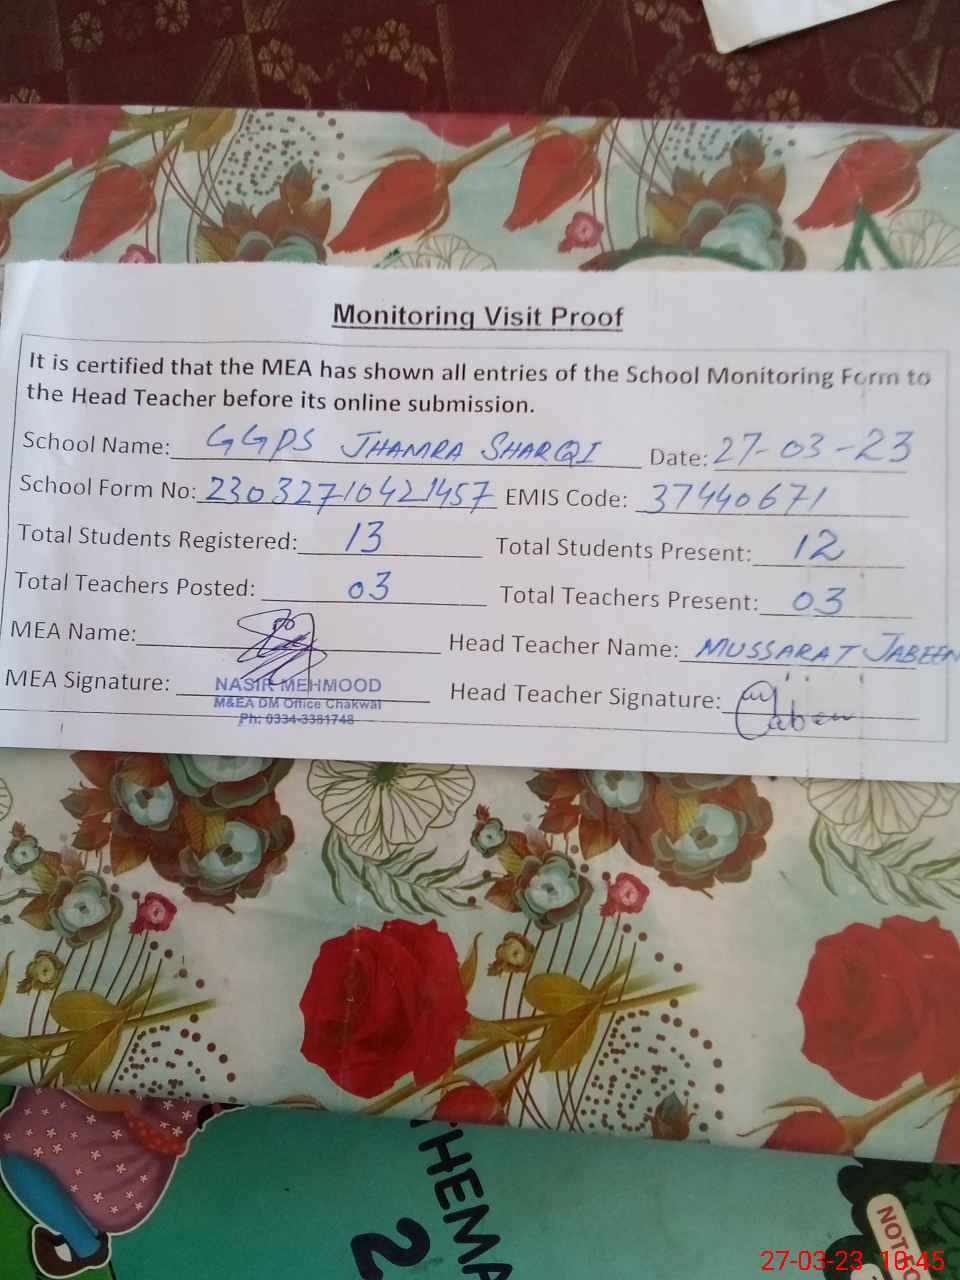 Monitoring Visit Proof
It is certified that the MEA has shown all entries of the School Monitoring Form to
the Head Teacher before its online submission.
School Name: GGPS JHAMRA SHARQI Date: 27-03-23
School Form No: 23032710421457 EMIS Code: 37440671
Total Students Registered: 13 Total Students Present: 12
Total Teachers Posted: 03 Total Teachers Present: 03
MEA Name: Head Teacher Name: MUSSARAT JABEEN
MEA Signature: Head Teacher Signature:
NASIR MEHMOOD
M&EA DM Office Chakwal
Ph: 0334-3381748
THEMA
2
NOT
27-03-23 10:45